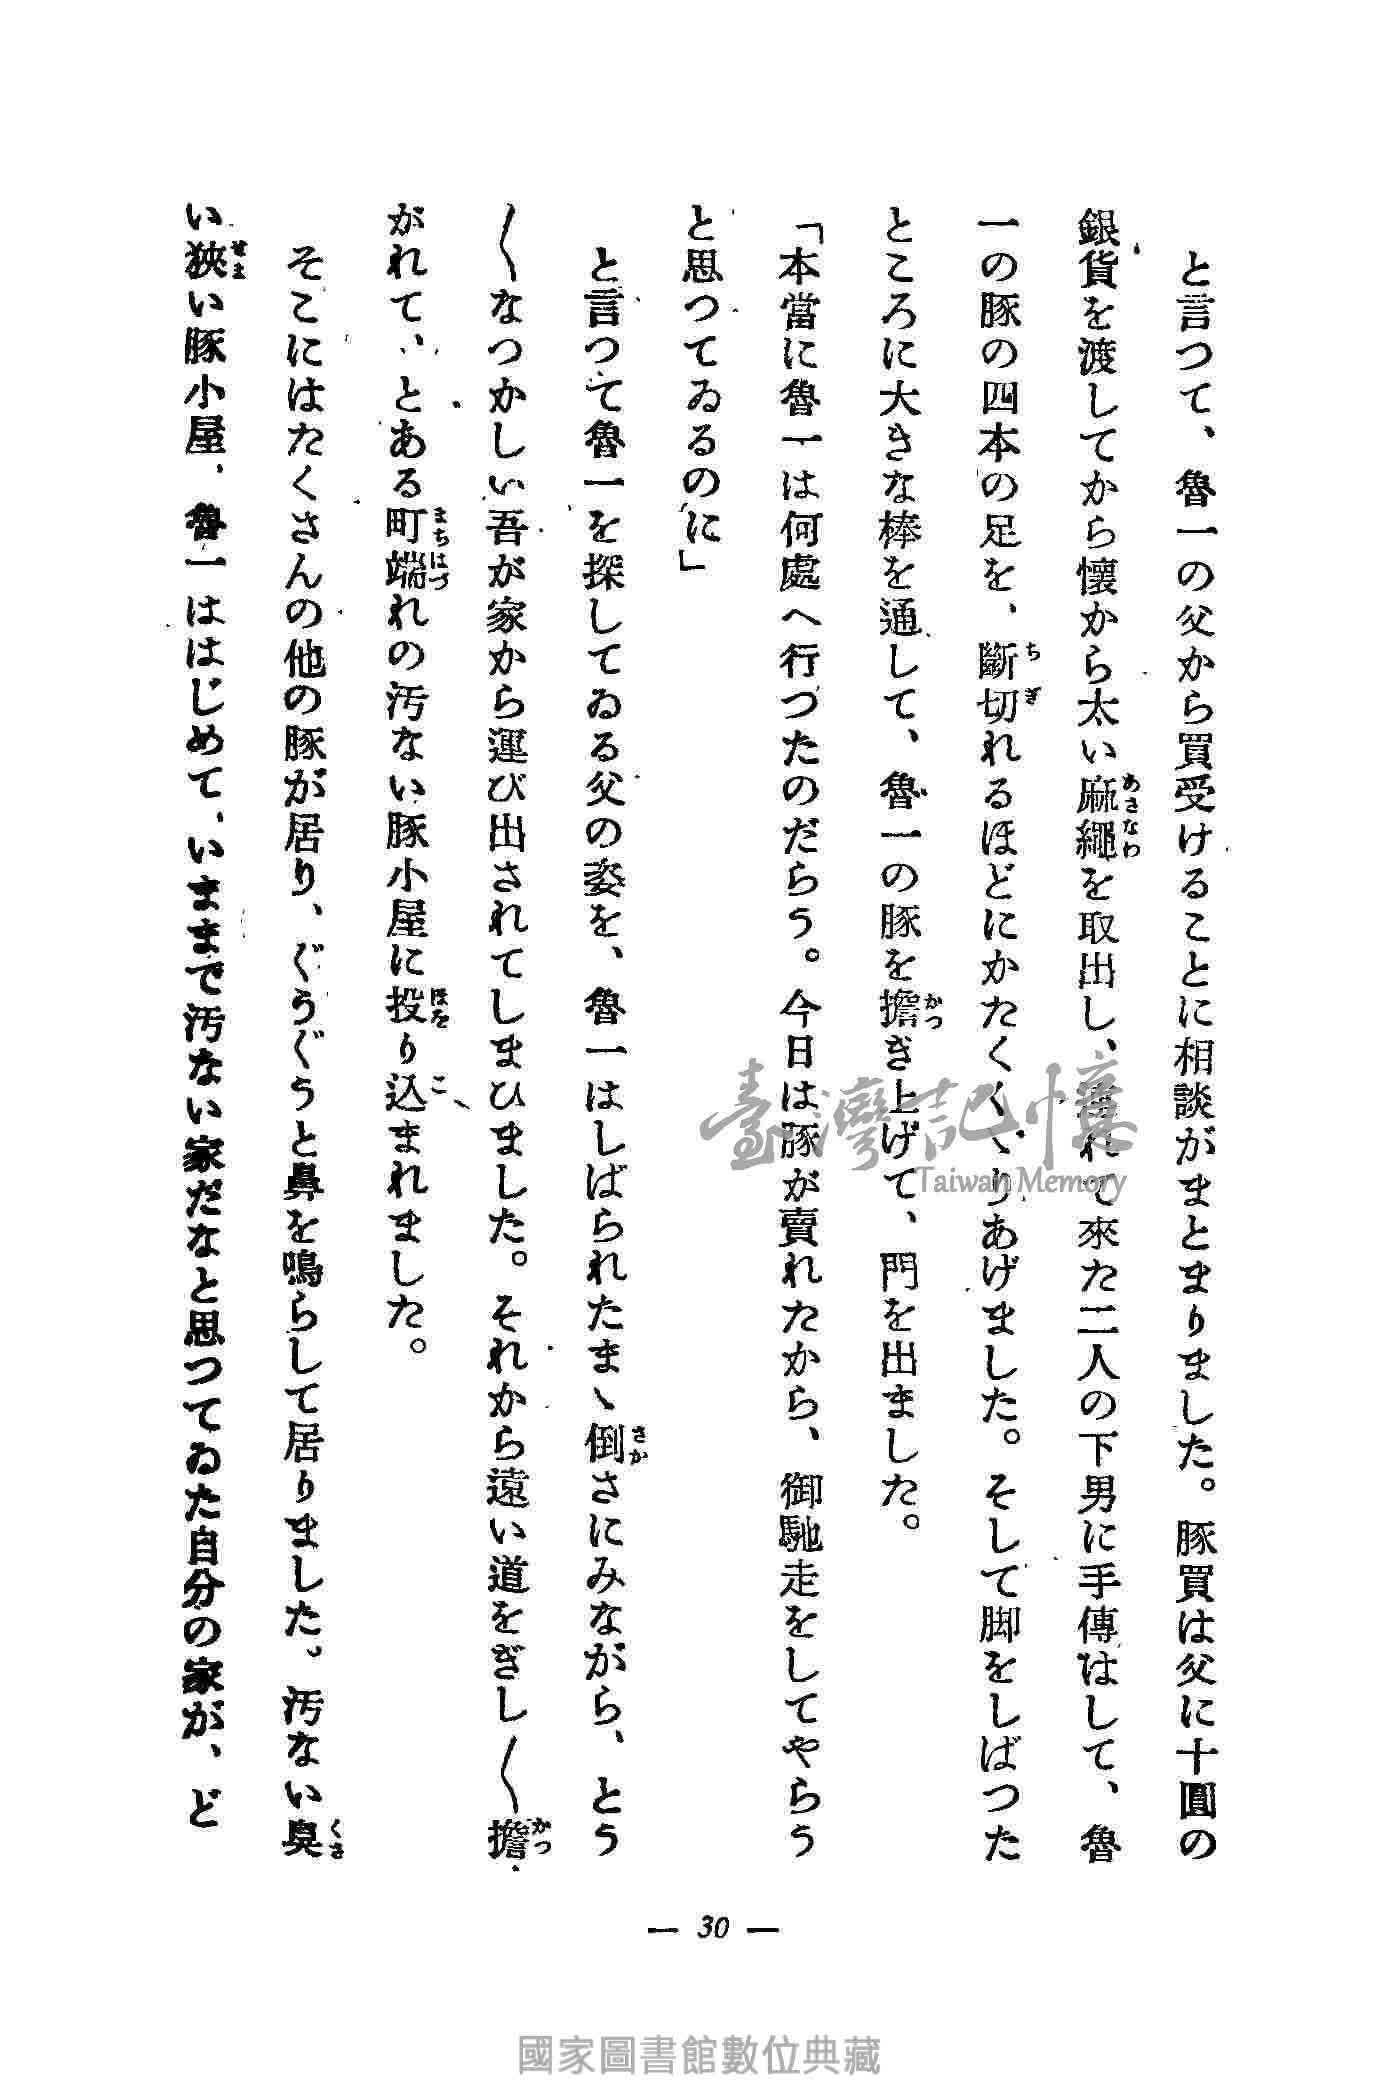 と言つて、魯一の父から買受けることに相談がまとまりました。豚買は父に十圓の
銀貨を渡してから懷から太い麻繩を取出し、連れて來た二人の下男に手傳はして、魯
一の豚の四本の足を、斷切れるほどにかたくくゝりあげました。そして脚をしばつた
ところに大きな棒を通して、魯一の豚を擔ぎ上げて、門を出ました。
「本當に魯一は何處へ行つたのだらう。今日は豚が賣れたから、御馳走をしてやらう
と思つてゐるのに」
と言つて魯一を探してゐる父の姿を、魯一はしばられたまゝ倒さにみながら、とう
〱なつかしい吾が家から運び出されてしまひました。それから遠い道をぎし〱擔
がれて、とある町端れの汚ない豚小屋に投り込まれました。
そこにはたくさんの他の豚が居り、ぐうぐうと鼻を鳴らして居りました。汚ない臭
い狹い豚小屋、魯一ははじめて、いままで汚ない家だなと思つてゐた自分の家が、ど
— 30 —
臺灣記憶
Taiwan Memory
國家圖書館數位典藏